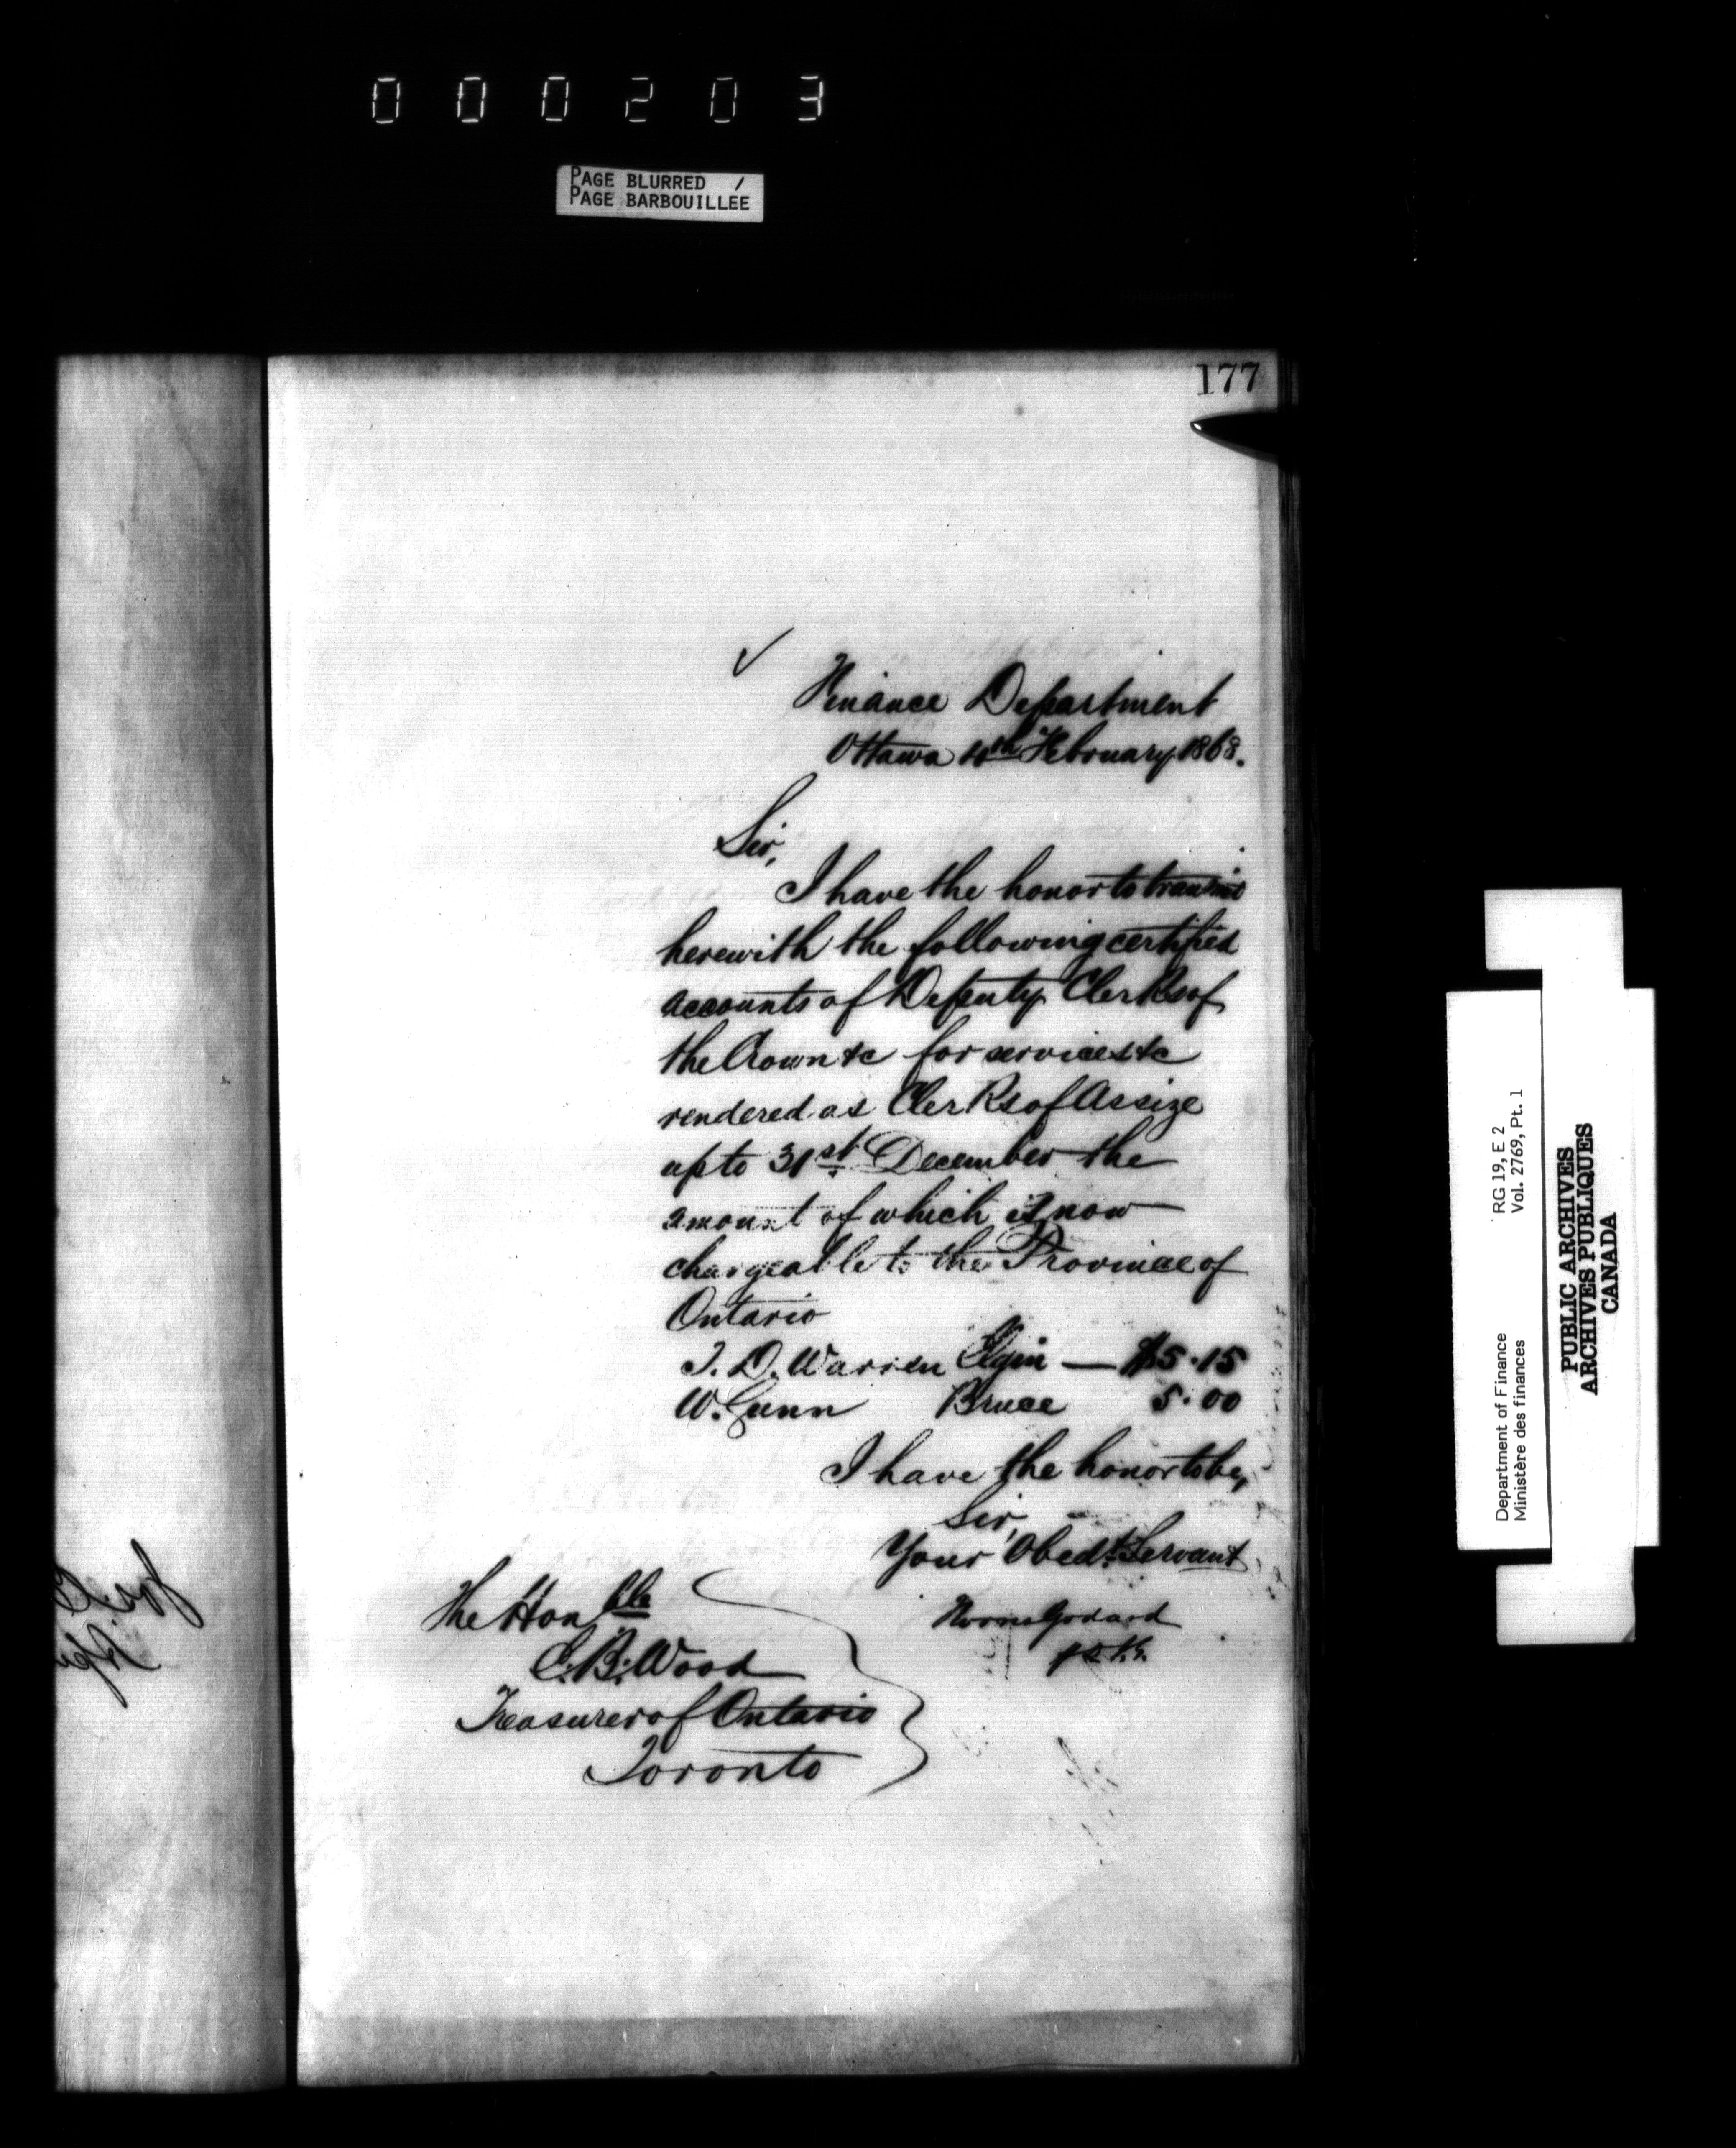 000203
PAGE BLURRED /
PAGE BARBOUILLÉE
177
Finance Department
Ottawa February 1868.
Sir,
I have the honor to transmit
herewith the following certified
accounts of Deputy Clerks of
the Crown &c for services &c
rendered as Clerks of Assize
up to 31st December the
amount of which is now
chargeable to the Province of
Ontario
J. D. Warren Elgin — $5.15
W. Gunn Bruce 5.00
I have the honor to be,
Sir,
Your Obedt Servant
Godard
The Honble
E. B. Wood
Treasurer of Ontario
Toronto
Department of Finance RG 19, E 2
Ministère des finances Vol. 2769, Pt. 1
PUBLIC ARCHIVES
ARCHIVES PUBLIQUES
CANADA